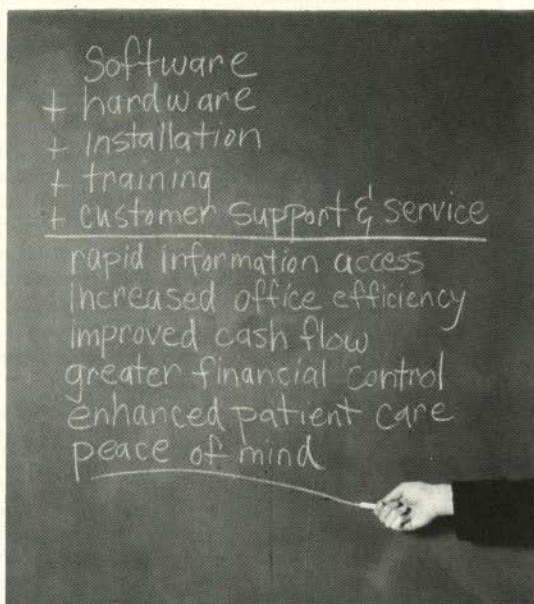 Software
+ hardware
+ installation
+ training
+ customer support & service
rapid information access
increased office efficiency
improved cash flow
greater financial control
enhanced patient care
peace of mind